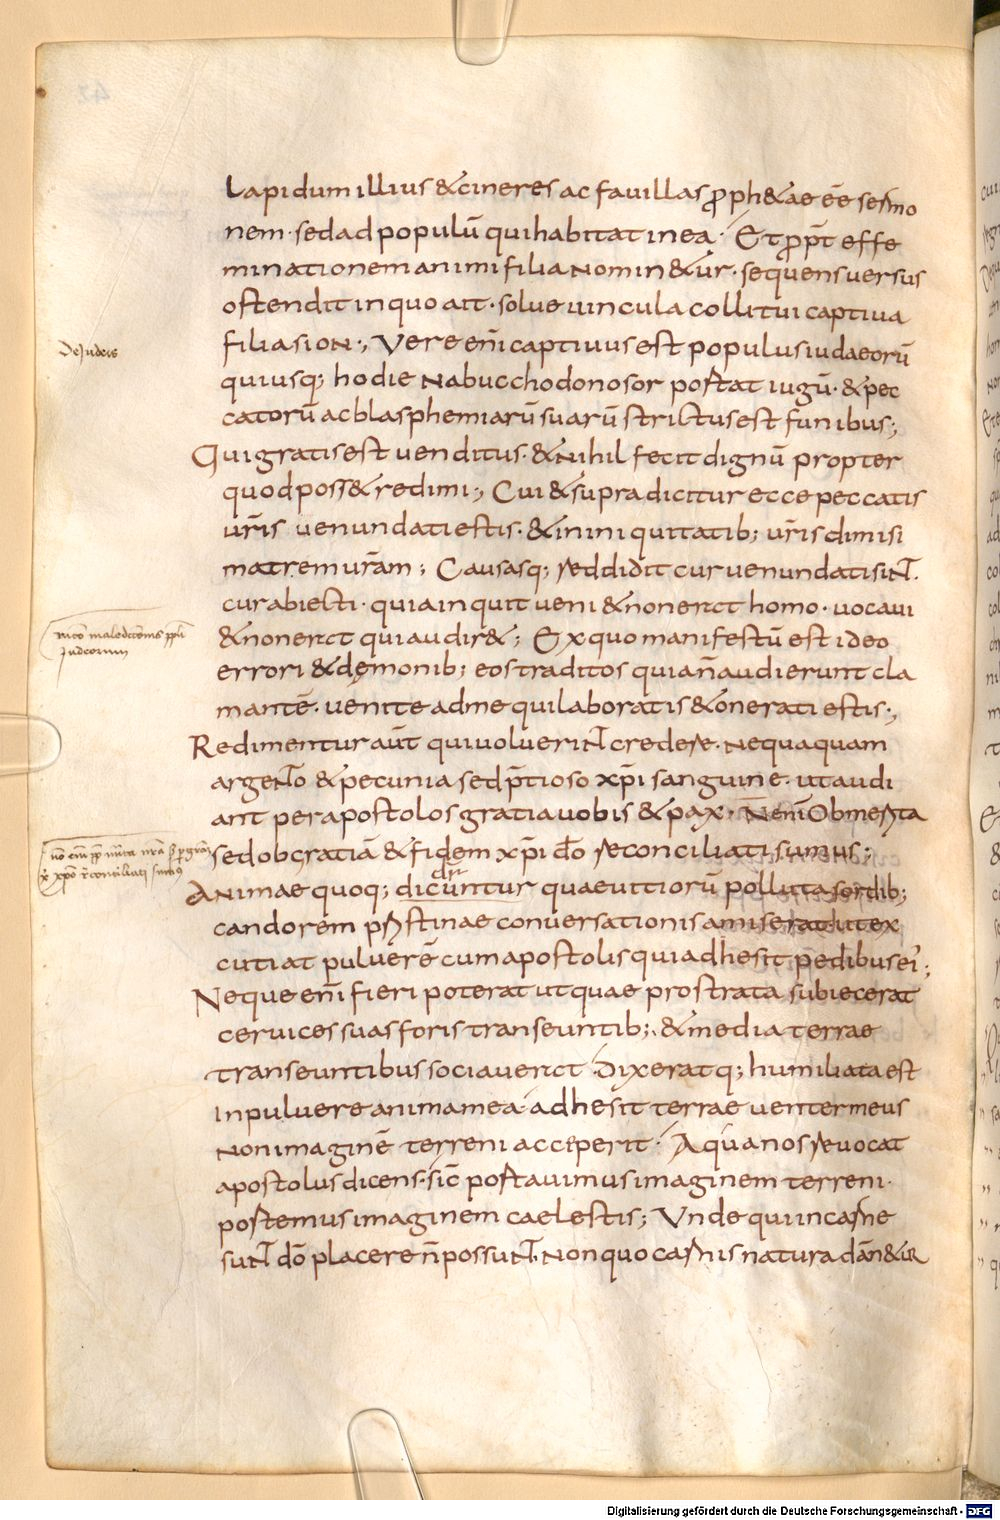 Lapidum illius & cineres ac favillas ꝓph&ae ēē sermo
nem · sed ad populū qui habitat in ea · Et ꝓpt̄ effe
minationem animi filia nomin&ur · sequens versus
ostendit in quo ait · solve vincula colli tui captiva
filia sion ·, Vere eni̅ captivus est populus iudaeorū
De Judeis
qui usq; hodie nabucchodonosor portat iugū · & pec
catorū ac blasphemiarū suarū strictus est funibus ;,
Qui gratis est venditus · & nihil fecit dignū propter
quod poss& redimi ;, Cui & supra dicitur ecce peccatis
vr̄is venundati estis · & in iniquitatib; vr̄is dimisi
matrem vr̄am ; Causasq; reddidit cur venundati sint ·
cur abiecti · quia inquit veni & non erat homo · vocavi
& non erat qui audir& ; Ex quo manifestū est ideo
Judeorum
errori & dęmonib; eos traditos quia n̄ audierunt cla
mantē · venite ad me qui laboratis & onerati estis ·,
Redimentur aut̄ qui voluerint credere · nequaquam
argento & pecunia sed p̄tioso xp̄i sanguine · ut audi
ant per apostolos gratia vobis & pax · N̄ eni̅ ob merita
sed ob gratiā & fidem xp̄i dō reconciliati sumus ;,
Animae quoq; dicuntur quae vitiorū polluta sordib;
candorem pristinae conversationis amiserat ut ex
cutiat pulverē cum apostolis qui adhesit pedibus ei' ;
Neque eni̅ fieri poterat ut quae prostrata subiecerat
cervices suas foris transeuntib; · & media terrae
transeuntibus sociaverat Dixeratq; humiliata est
in pulvere anima mea · adhesit terrae venter meus
non imaginē terreni acceperit · A qua nos revocat
apostolus dicens · sic̄ portavimus imaginem terreni ·
portemus imaginem caelestis ; Unde qui in carne
sunt dō placere n̄ possunt · non quo carnis natura dāmn&ur
Digitalisierung gefördert durch die Deutsche Forschungsgemeinschaft - DFG